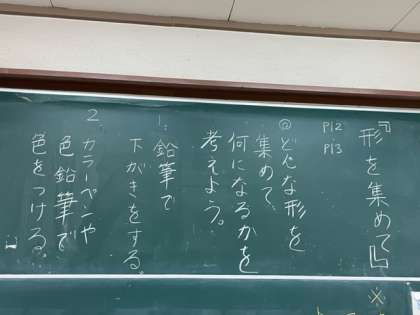 『形を集めて』
P12
P13
@どんな形を
集めて
何になるかを
考えよう。
1.鉛筆で
下がきをする。
2
カラーペンや
色鉛筆で
色をつける。
※